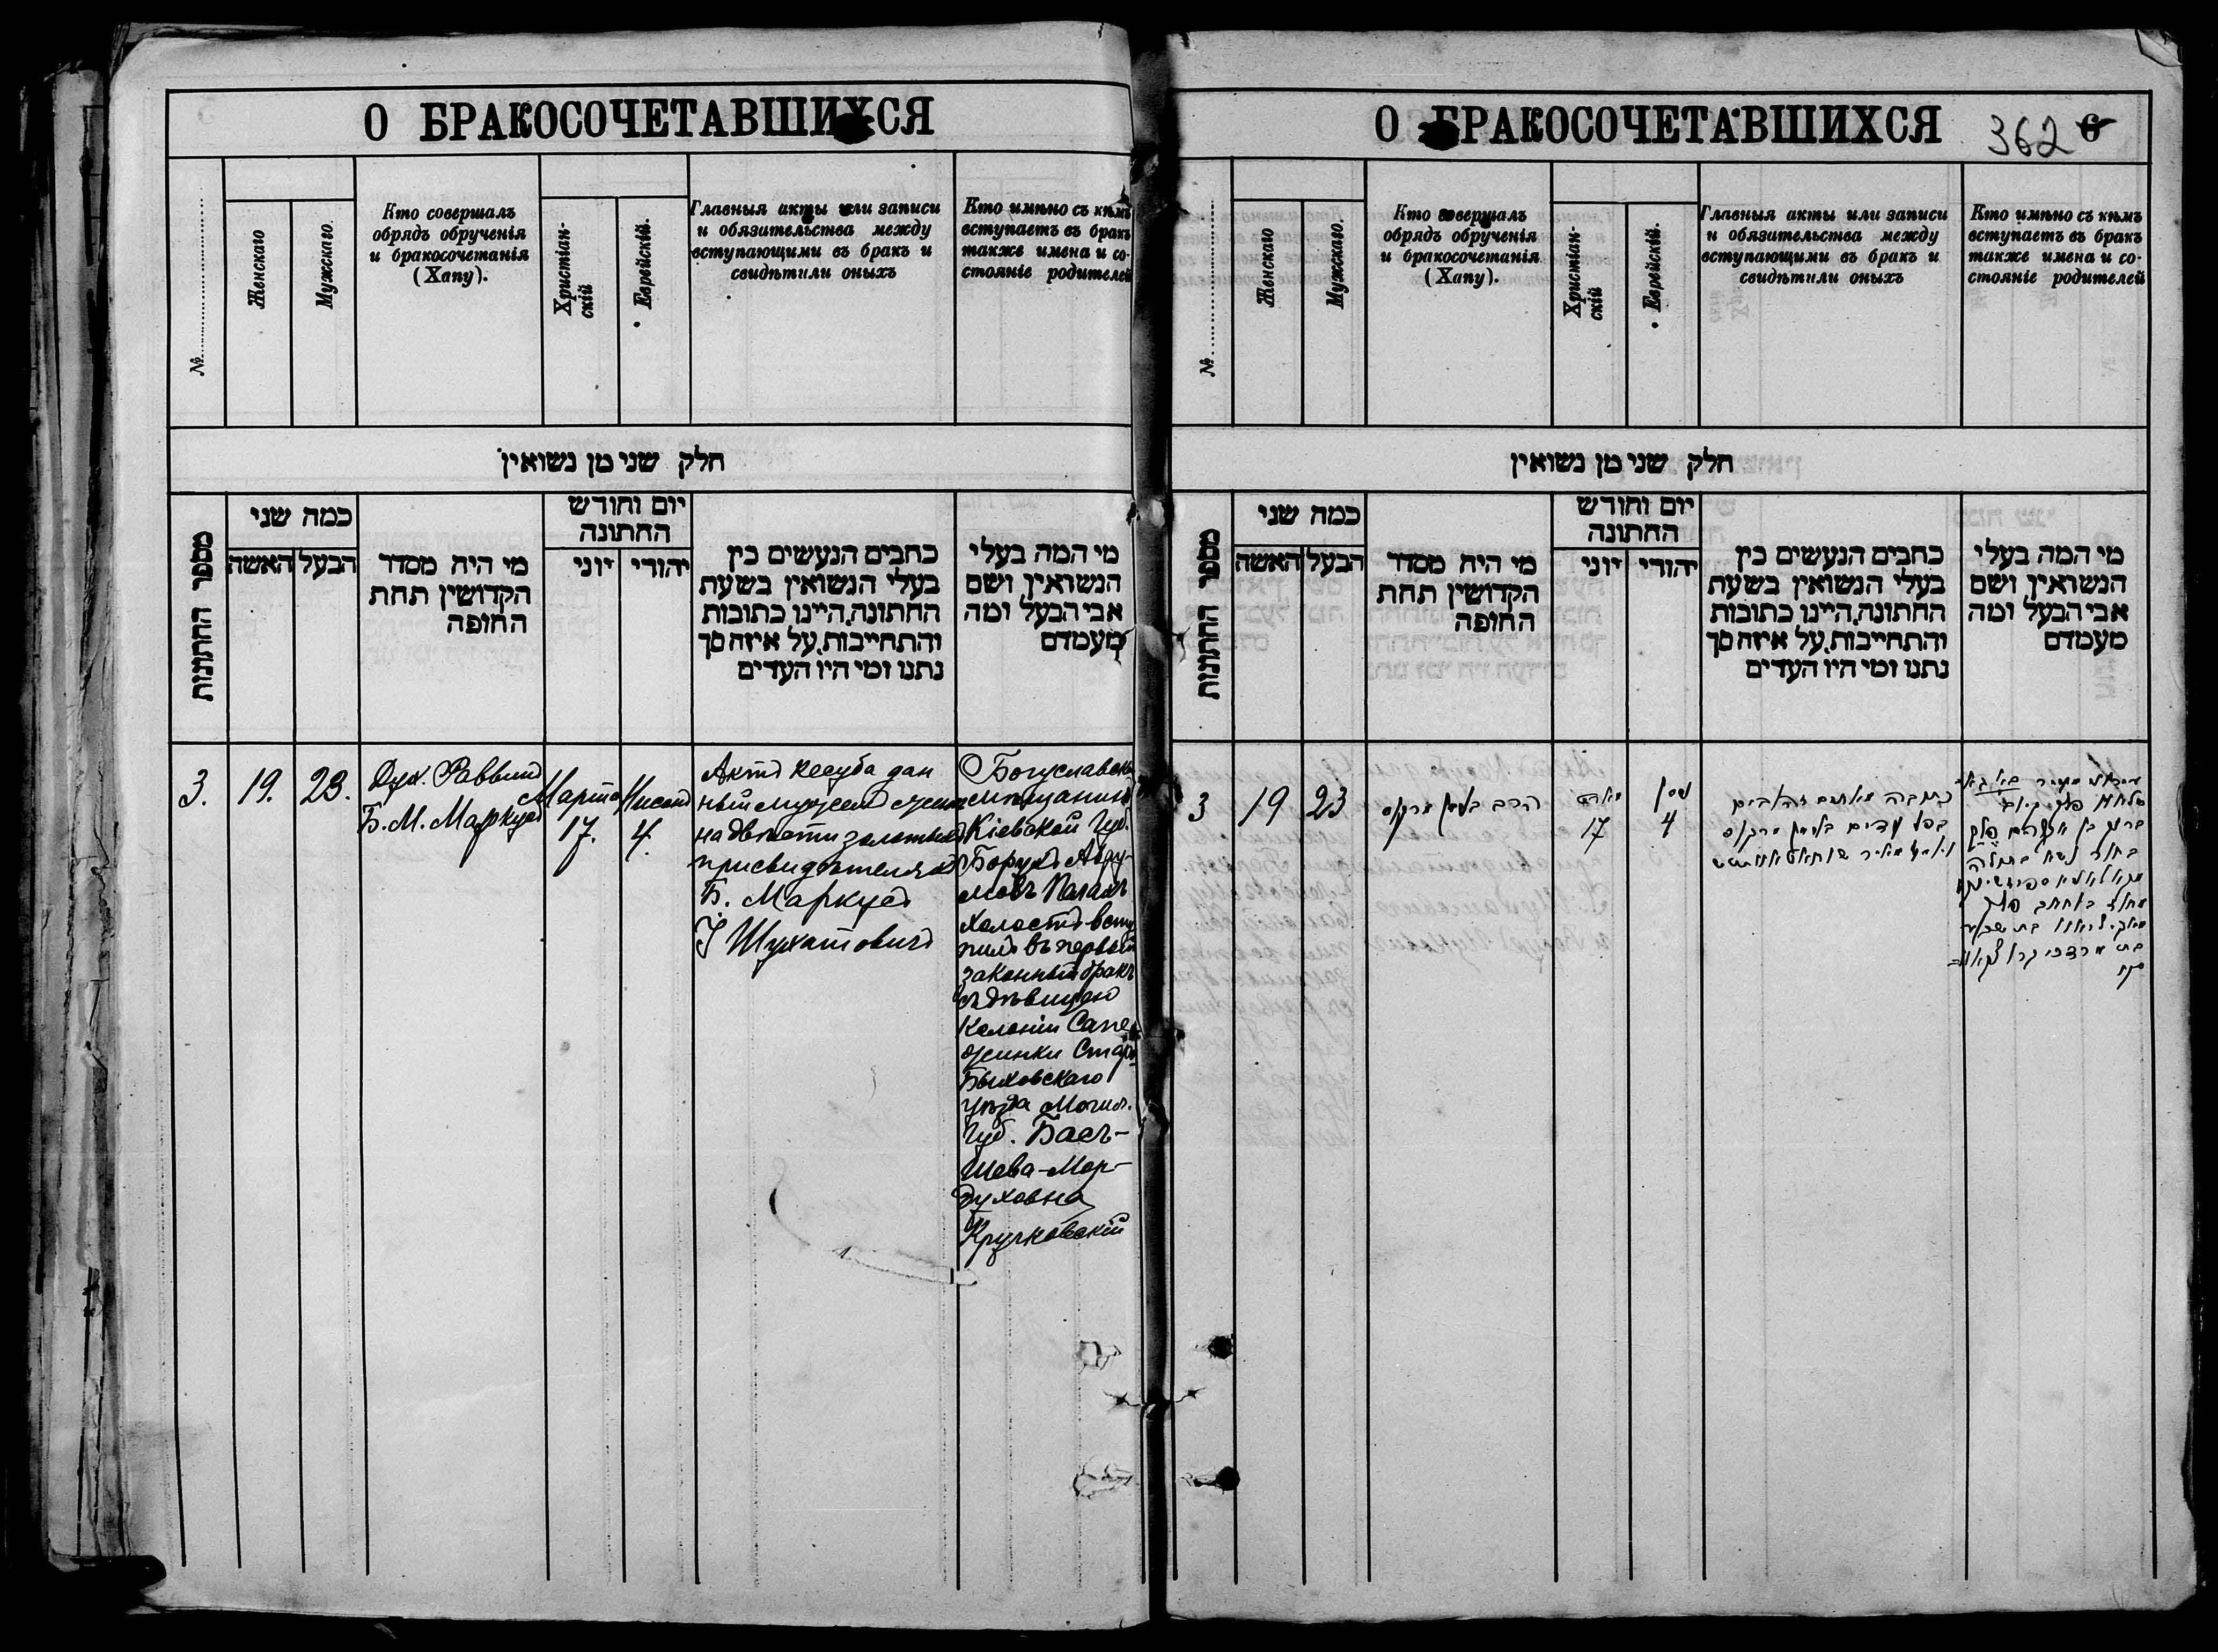 О БРАКОСОЧЕТАВШИХСЯ
№
Женскаго
Мужскаго.
Кто совершалъ
обрядъ обрученія
и бракосочетанія
(Хапу).
Христіан-
скій
Еврейскій.
Главныя акты или записи
и обязательства между
вступающими въ бракъ и
свидѣтили оныхъ
Кто имѣно съ кѣмъ
вступаетъ въ бракъ
также имена и со-
стояніе родителей
חלק שני מן נשואין
מספר החתונות
כמה שני
האשה
הבעל
מי היה מסדר
הקדושין תחת
החופה
יום וחודש
החתונה
יוני
יהודי
כתבים הנעשים בין
בעלי הנשואין בשעת
החתונה, היינו כתובות
והתחייבות, על איזה סך
נתנו ומי היו העדים
מי המה בעלי
הנשואין ושם
אבי הבעל ומה
מעמדם
3.
19.
23.
Дух. Раввинъ
Б. М. Маркусъ
Марта
17.
Нисонъ
4.
Актъ кесуба дан
ный мужемъ жене
на двѣсти золотыхъ
при свидѣтеляхъ
Б. Маркусъ
І Шухатовичъ
Богуславскій
мѣщанинъ
Кіевской Губ.
Борухъ Абру-
мовъ
холостъ всту
пилъ въ первый
законный бракъ
съ дѣвицею
Колоніи Сапе
жинки Старо
Быховскаго
уѣзда Могил.
Губ. Басъ-
Шева-Мор-
духовна
Кручковскій
О БРАКОСОЧЕТАВШИХСЯ
362 6
№
Женскаго
Мужскаго.
Кто совершалъ
обрядъ обрученія
и бракосочетанія
(Хапу).
Христіан-
скій
Еврейскій.
Главныя акты или записи
и обязательства между
вступающими въ бракъ и
свидѣтили оныхъ
Кто имѣно съ кѣмъ
вступаетъ въ бракъ
также имена и со-
стояніе родителей
חלק שני מן נשואין
מספר החתונות
כמה שני
האשה
הבעל
מי היה מסדר
הקדושין תחת
החופה
יום וחודש
החתונה
יוני
יהודי
כתבים הנעשים בין
בעלי הנשואין בשעת
החתונה, היינו כתובות
והתחייבות, על איזה סך
נתנו ומי היו העדים
מי המה בעלי
הנשואין ושם
אבי הבעל ומה
מעמדם
3
19
23
הרב בנימן מרקוס
מארט
17
ניסן
4
כתובה מאתים זהובים
בפני עדים בנימן מרקוס
ברוך בן אברהם
בחור נשא בתולה
בת מרדכי